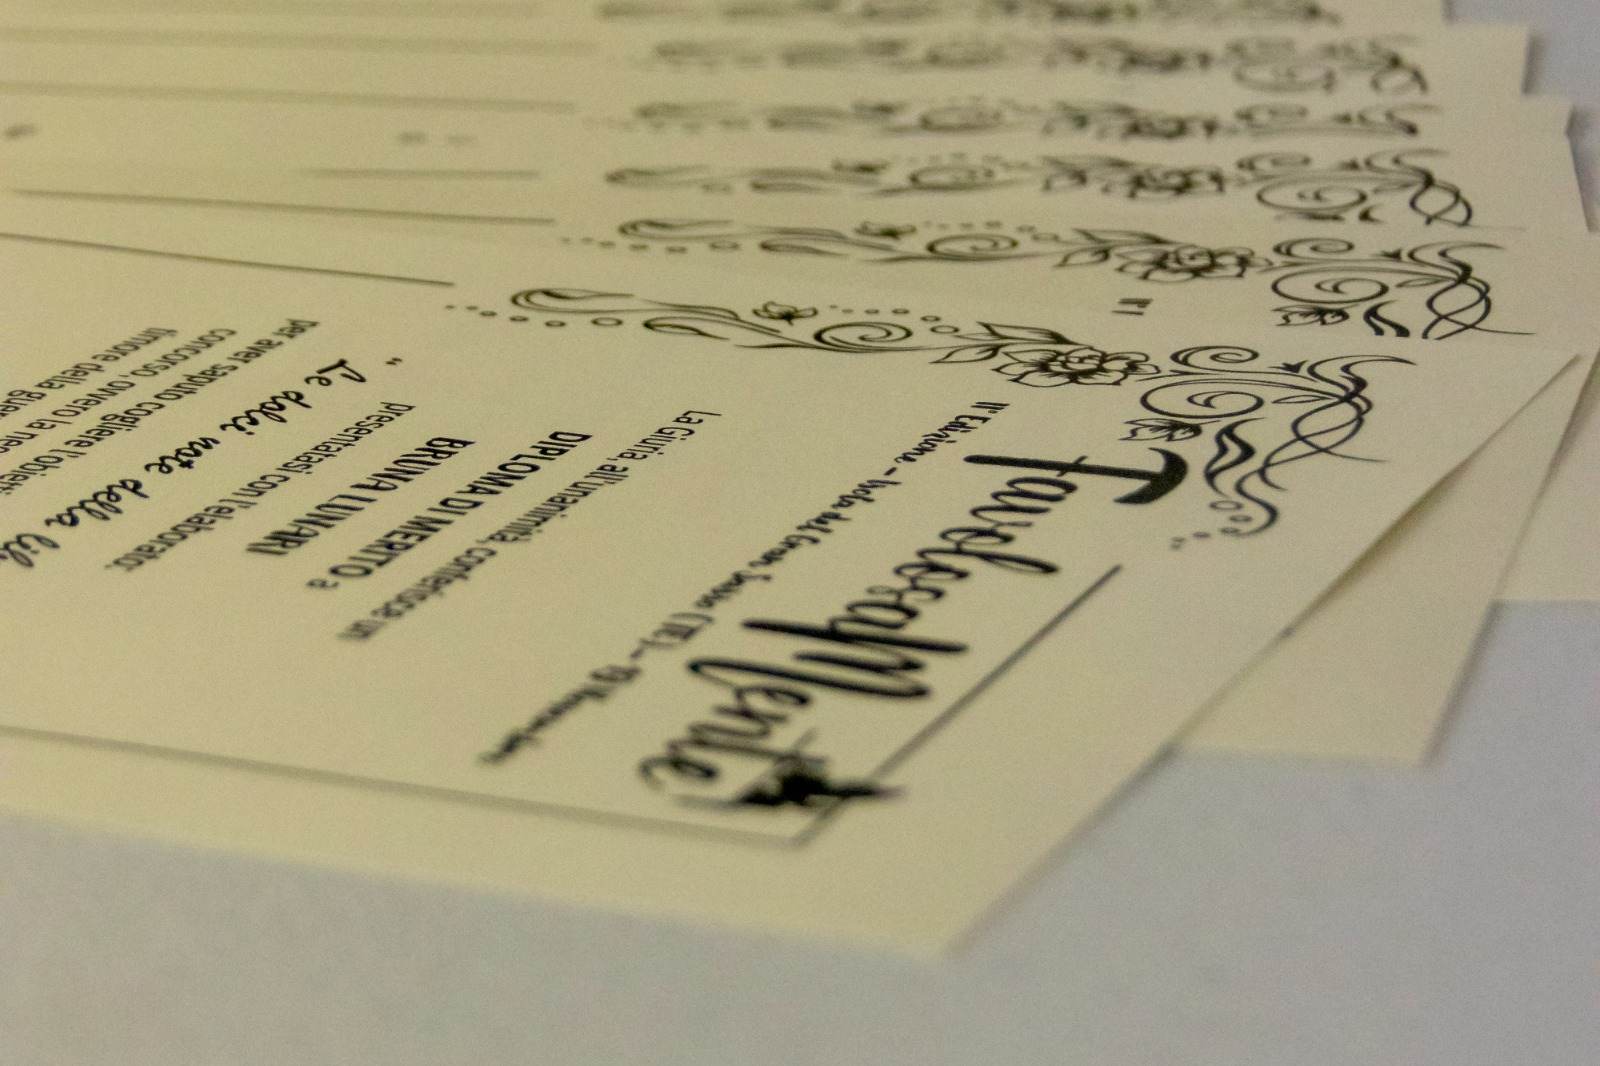 FavolosaMente
IIª Edizione - Isola del Gran Sasso (TE) - 19 Novembre
La Giuria, all'unanimità, conferisce un
DIPLOMA DI MERITO a
BRUNA LUNARI
presentatasi con l'elaborato:
"Le dolci note della
per aver saputo cogliere l'obietti
concorso, ovvero la
timore della